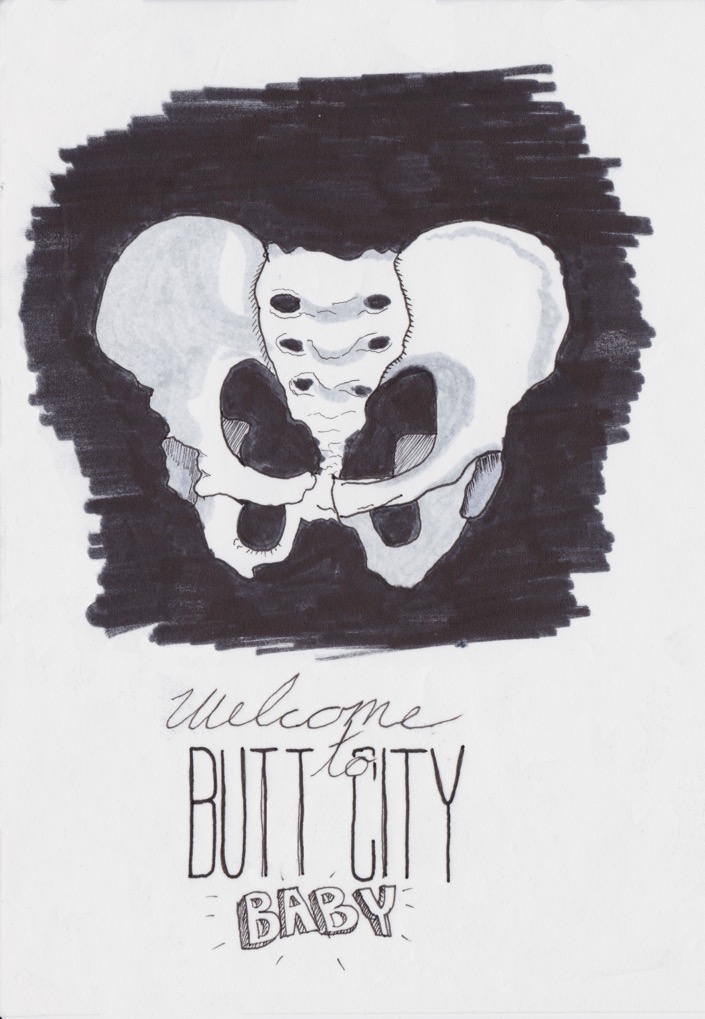 Welcome
to
BUTT CITY
BABY